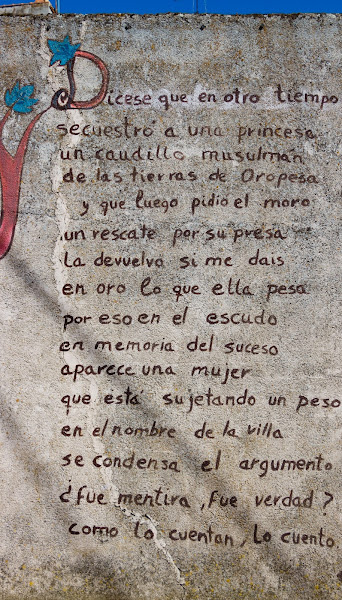 Dicese que en otro tiempo
secuestro a una princesa
un caudillo musulmán
de las tierras de Oropesa
y que luego pidio el moro
un rescate por su presa
la devuelvo si me dais
en oro lo que ella pesa
por eso en el escudo
en memoria del suceso
aparece una mujer
que está sujetando un peso
en el nombre de la villa
se condensa el argumento
¿fue mentira, fue verdad?
como lo cuentan, lo cuento